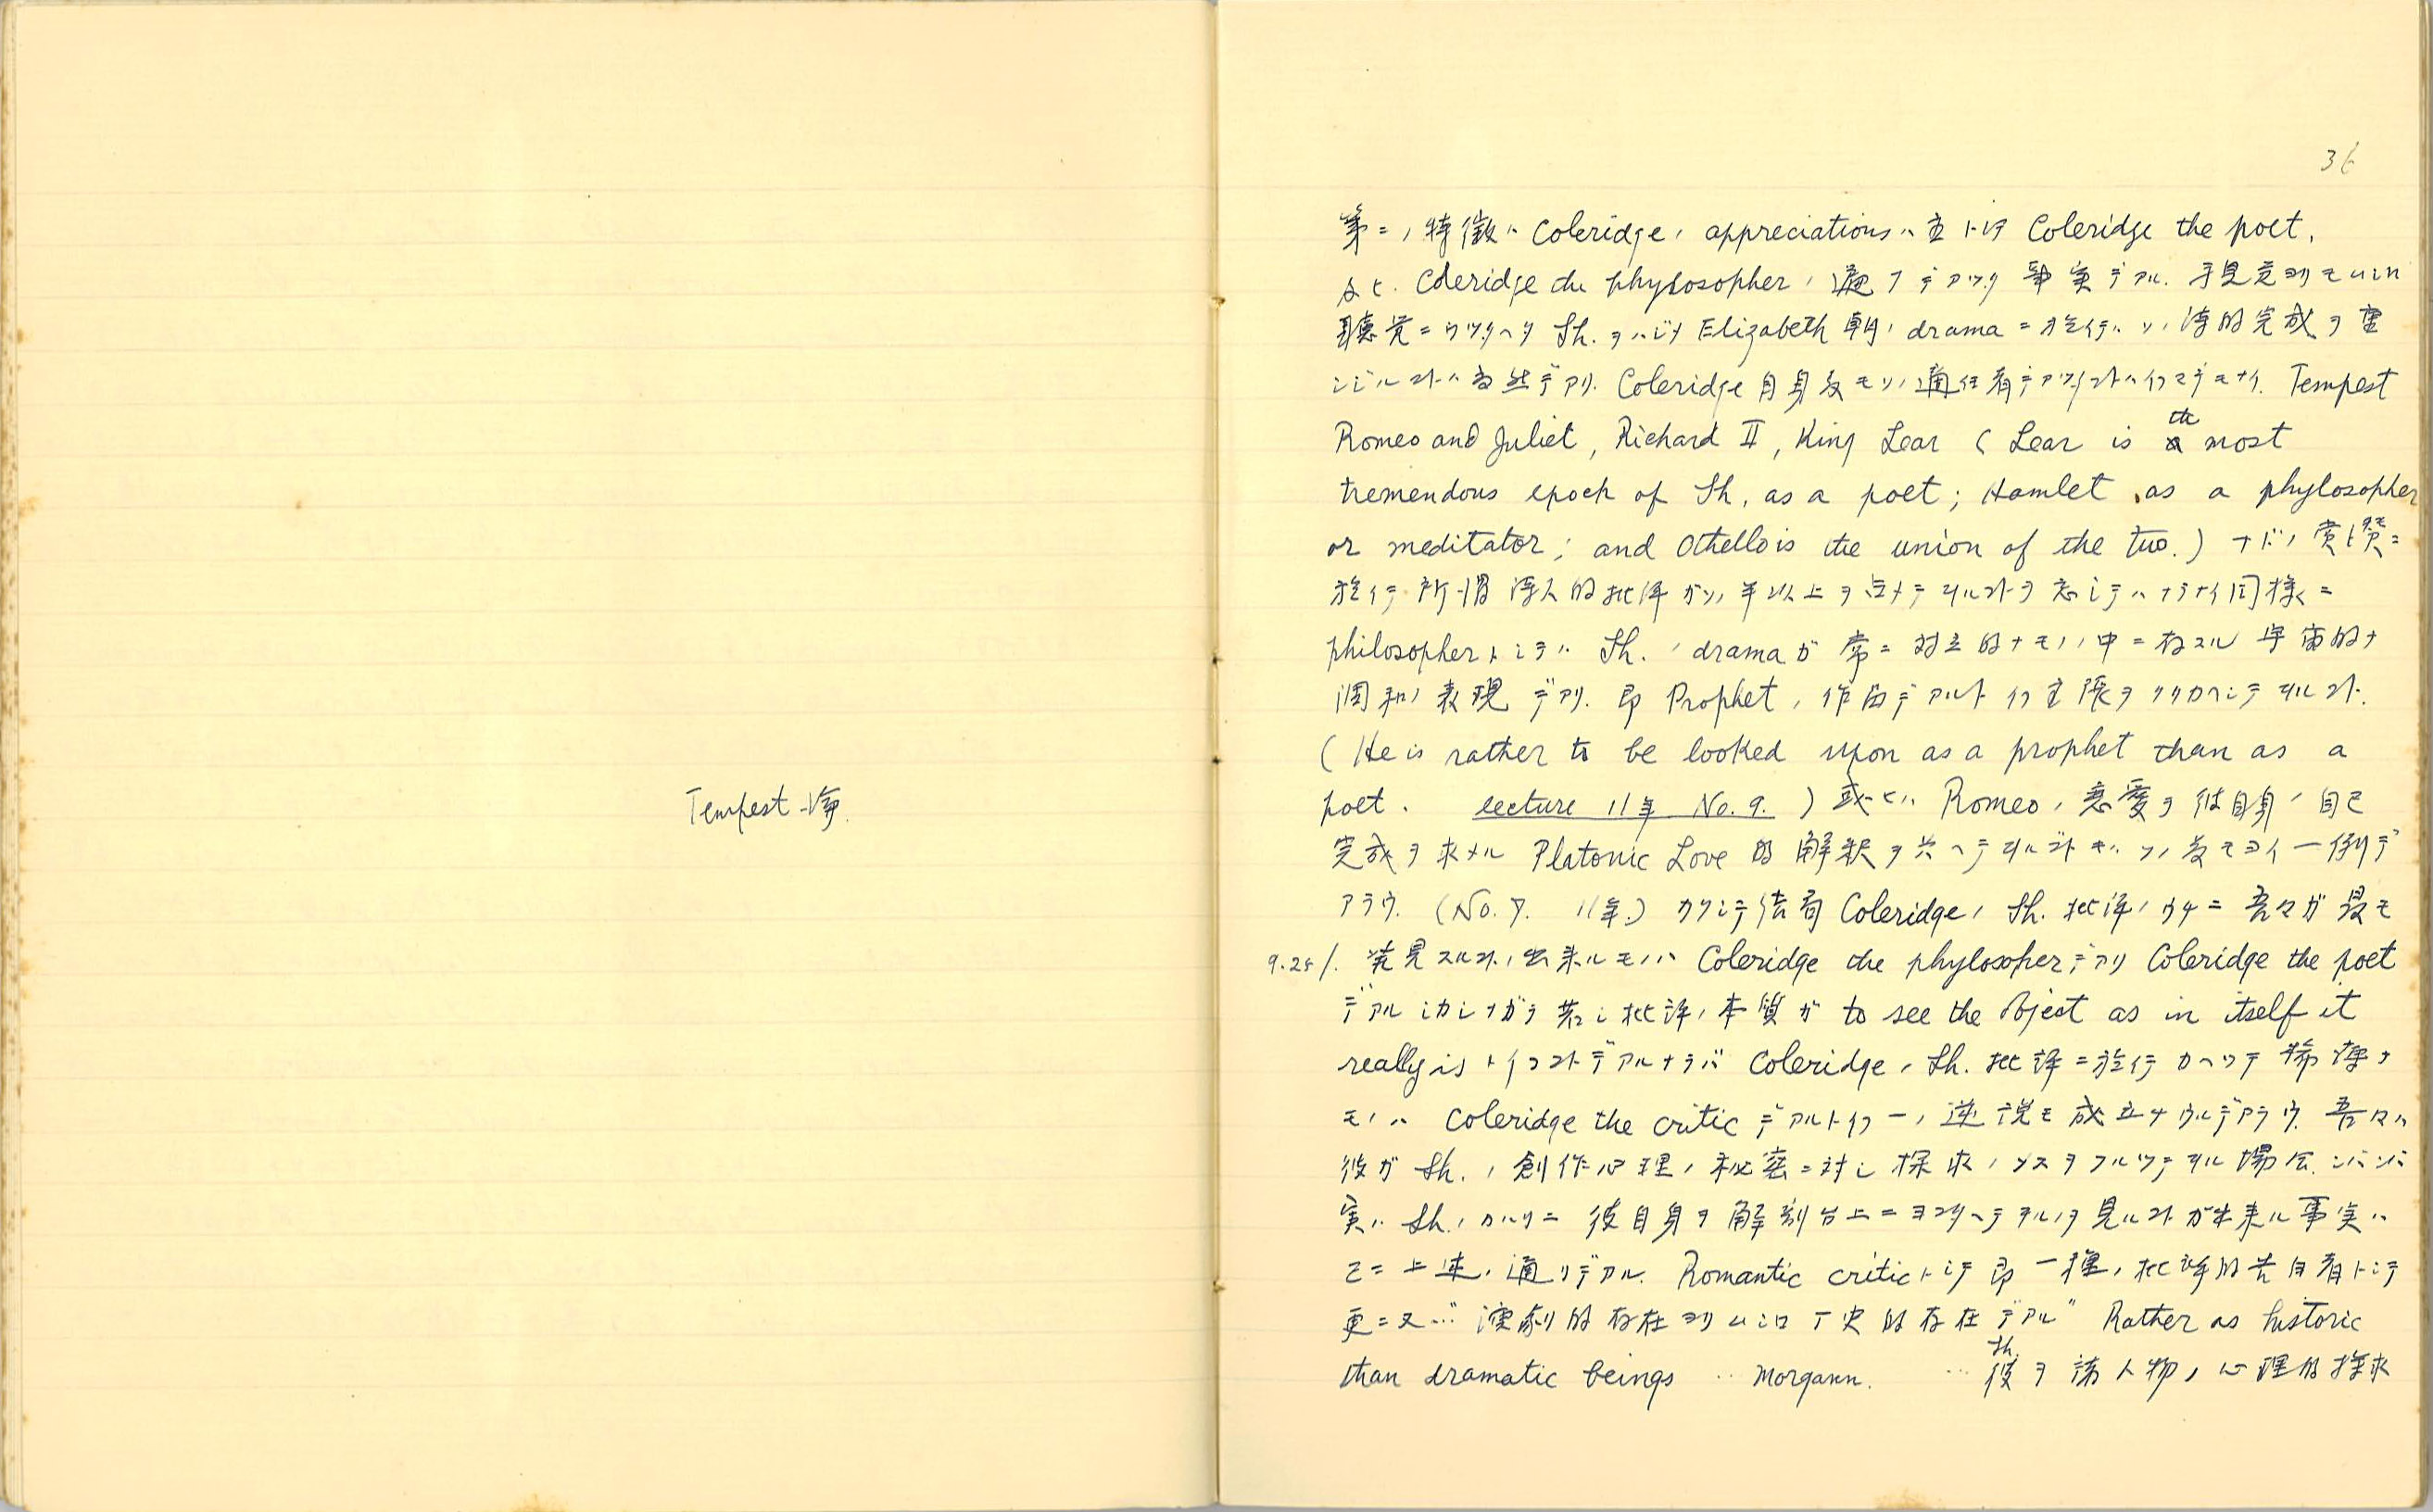 Tempest 論
36
第二ノ特徴ハ Coleridgeノ appreciationsハ主トシテ Coleridge the poet,
and Coleridge the phylosopherノ デアッタ事実デアル. 視覚ヨリモムシロ
聴覚ニウッタヘタ Sh. ヲハジメ Elizabeth 朝ノ drama ニ於イテハソノ詩的完成ヲ重
ンジルコトハ当然デアリ. Coleridge 自身最モソノ適任者デアッタコトハイフマデモナイ. Tempest
Romeo and Juliet, Richard II, King Lear ( Lear is the most
tremendous epoch of Sh, as a poet; Hamlet, as a phylosopher
or meditator; and Othello is the union of the two.) ナドノ賞讃ニ
於イテ所謂詩人的批評ガソノ半以上ヲ占メテヰルコトヲ忘レテハナラナイ同様ニ
philosopher トシテハ Sh.ノ drama ガ常ニ対立的ナモノノ中ニ存スル宇宙的ナ
調和ノ表現デアリ. 即 Prophetノ作品デアルト イフ主張ヲクリカヘシテヰルコト.
( He is rather to be looked upon as a prophet than as a
poet. lecture 11年 No. 9. ) 或ヒハ Romeoノ恋愛ヲ彼自身ノ自己
完成ヲ求メル Platonic Love 的解釈ヲ与ヘテヰルコトモソノ最モヨイ一例デ
アラウ. (No. 7. 11年.) カクシテ結局 Coleridgeノ Sh. 批評ノウチニ吾々ガ最モ
9.25/. 発見スルコトノ出来ルモノハ Coleridge the phylosopher デアリ Coleridge the poet
デアル シカシナガラ若シ批評ノ本質ガ to see the object as in itself it
really is トイフコトデアルナラバ Coleridgeノ Sh. 批評ニ於イテカヘッテ稀薄ナ
モノハ Coleridge the critic デアルトイフ一ノ逆説モ成立ナウルデアラウ. 吾々ハ
彼ガ Sh.ノ創作心理ノ秘密ニ対シ探求ノメスヲフルッテヰル場合. シバシバ
実ハ Sh.ノカハリニ 彼自身ヲ解剖台上ニヨコタヘテヰルノヲ見ルコトガ出来ル事実ハ
已ニ上述ノ通リデアル. Romantic critic トシテ即一種ノ批評的告白者トシテ
更ニ又… 演劇的存在ヨリムシロ 史的存在デアル" Rather as historic
than dramatic beings ‥ Morgann. … Sh. 彼ヲ諸人物ノ心理的探求